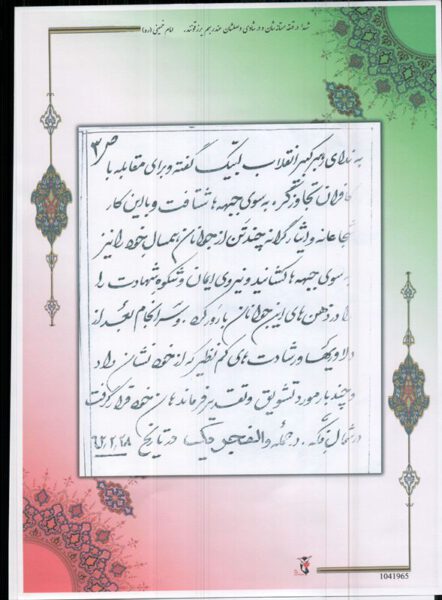 شهدا در قهقهه مستانه‌شان و در شادی وصولشان عند ربهم یرزقونند. امام خمینی (ره)
ص ۳
به ندای رهبر کبیر انقلاب لبیک گفته و برای مقابله با
کافران تجاوزگر به سوی جبهه ها شتافت و با این کار
شجاعانه و ایثارگرانه چند تن از جوانان همسال خود را نیز
به سوی جبهه ها کشانید و نیروی ایمان و شکوه شهادت را
در ذهن های این جوانان بارور کرد. و سرانجام بعد از
دلاوریها و رشادت های کم نظیر که از خود نشان داد
و چند بار مورد تشویق و تقدیر فرماندهان خود قرار گرفت
در شمال فکه. در حمله والفجر یک در تاریخ
۶۲،۱،۲۸
1041965